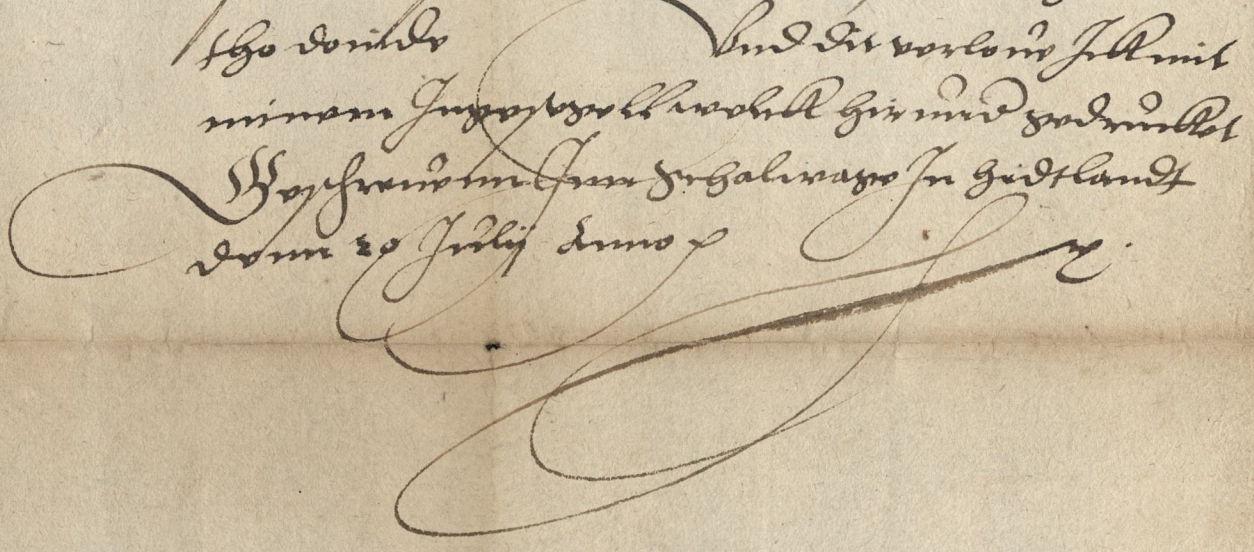 tho doinde Vnd dit verloue Ick mit
minem Ingesegell welck hir vnd gedrucket
Geschreuenn Inn Schalwage In Hidtlandt
denn 20 Julij Anno p